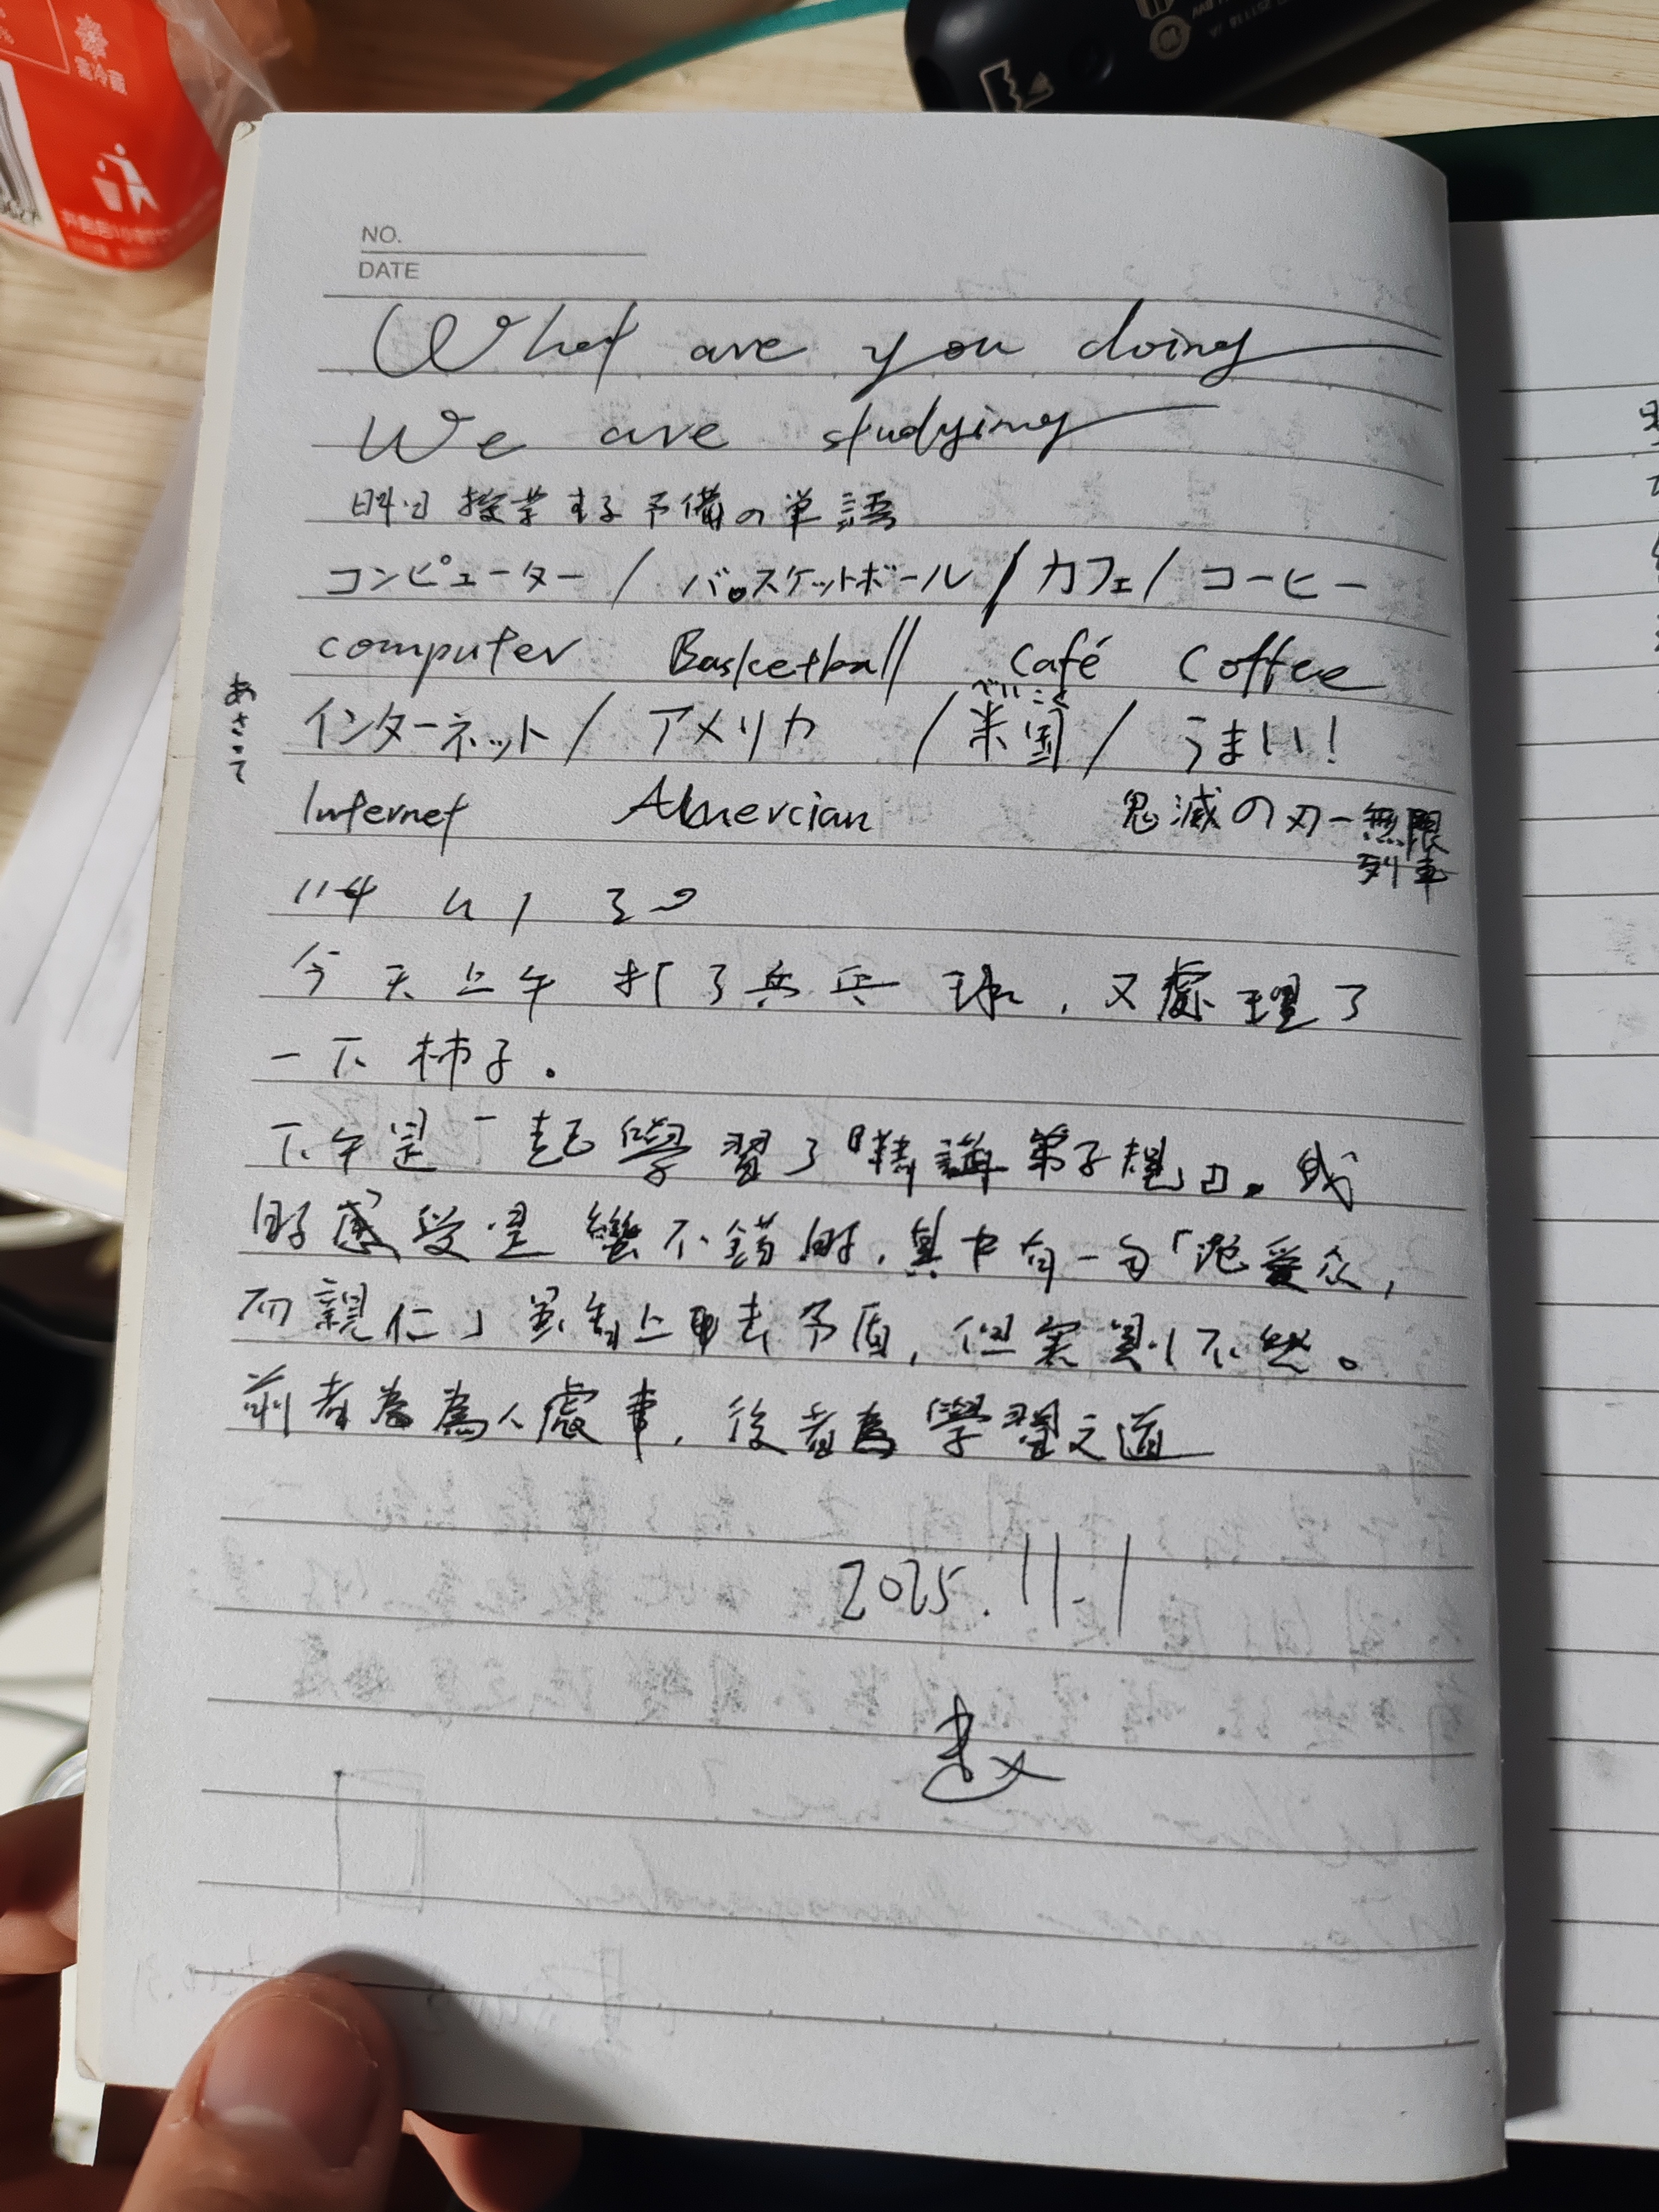 需冷藏
NO.
DATE
What are you doing
We are studying
昨日授業する予備の単語
コンピューター / バスケットボール / カフェ / コーヒー
computer Basketball Café Coffee
あさって
べいこく
インターネット / アメリカ / 米国 / うまい!
Internet Amercian 鬼滅の刃-無限
列車
114 11 1
今天上午打了兵乓球,又處理了
一下柿子.
下午是一起學習了『精講弟子規』。我
的感受是蠻不錯的,其中有一句「汎愛众,
而親仁」虽看上去矛盾,但実則不然。
前者為為人處事,後者為學習之道
2025.11.1